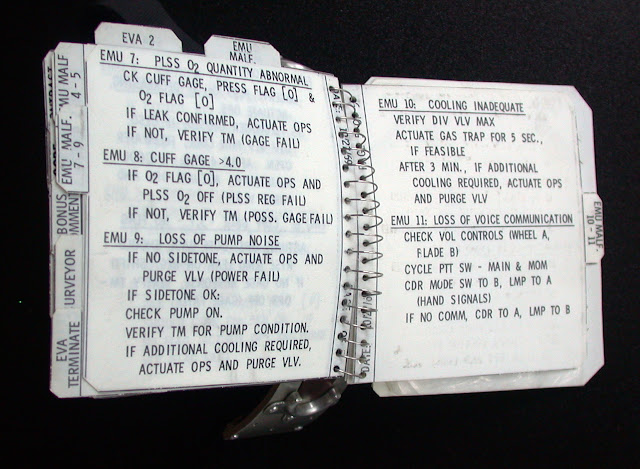 EVA 2
EMU
MALF.
EMU MALF
4 - 5
EMU MALF.
7 - 9
BONUS
URVEYOR
EVA
TERMINATE
EMU 7: PLSS O2 QUANTITY ABNORMAL
CK CUFF GAGE, PRESS FLAG [O] &
O2 FLAG [O]
IF LEAK CONFIRMED, ACTUATE OPS
IF NOT, VERIFY TM (GAGE FAIL)
EMU 8: CUFF GAGE >4.0
IF O2 FLAG [O], ACTUATE OPS AND
PLSS O2 OFF (PLSS REG FAIL)
IF NOT, VERIFY TM (POSS. GAGE FAIL)
EMU 9: LOSS OF PUMP NOISE
IF NO SIDETONE, ACTUATE OPS AND
PURGE VLV (POWER FAIL)
IF SIDETONE OK:
CHECK PUMP ON.
VERIFY TM FOR PUMP CONDITION.
IF ADDITIONAL COOLING REQUIRED,
ACTUATE OPS AND PURGE VLV.
EMU 10: COOLING INADEQUATE
VERIFY DIV VLV MAX
ACTUATE GAS TRAP FOR 5 SEC.,
IF FEASIBLE
AFTER 3 MIN., IF ADDITIONAL
COOLING REQUIRED, ACTUATE OPS
AND PURGE VLV
EMU 11: LOSS OF VOICE COMMUNICATION
CHECK VOL CONTROLS (WHEEL A,
FLADE B)
CYCLE PTT SW - MAIN & MOM
CDR MODE SW TO B, LMP TO A
(HAND SIGNALS)
IF NO COMM, CDR TO A, LMP TO B
EMU MALF.
10 - 11